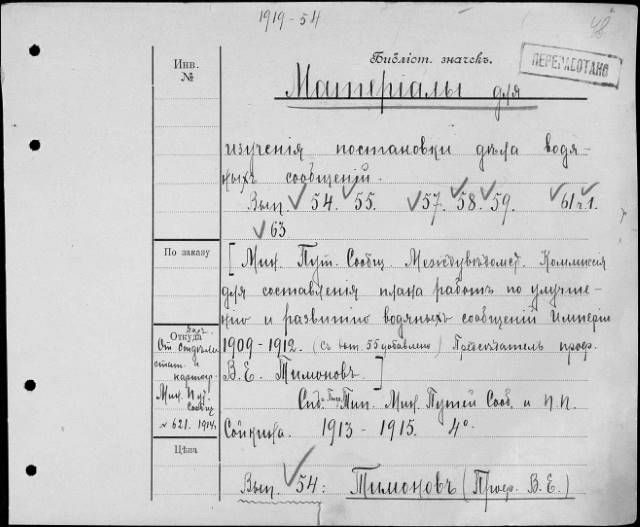 1919-54
48
Инв.
№
Библіот. значекъ.
ПЕРЕРАБОТАНО
Матеріалы для
изученія постановки дѣла водя-
ныхъ сообщеній.
Вып. 54. 55. 57. 58. 59. 61 ч. 1.
63
По заказу
[Мин. Пут. Сообщ. Междувѣдомст. Коммиссія
для составленія плана работъ по улучше-
нію и развитію водяныхъ сообщеній Имперіи
1909-1912. (Съ вып. 55 добавлено) Предсѣдатель проф.
В. Е. Тимоновъ.]
Откуда
Ст. Отдѣлъ
стат. и
картогр.
Мин. Пут.
Сообщ
№ 621. 1914.
Спб. Тип. Мин. Путей Сооб. и П. П.
Сойкина. 1913 - 1915. 4°.
Цѣна
Вып. 54: Тимоновъ (Проф. В. Е.)